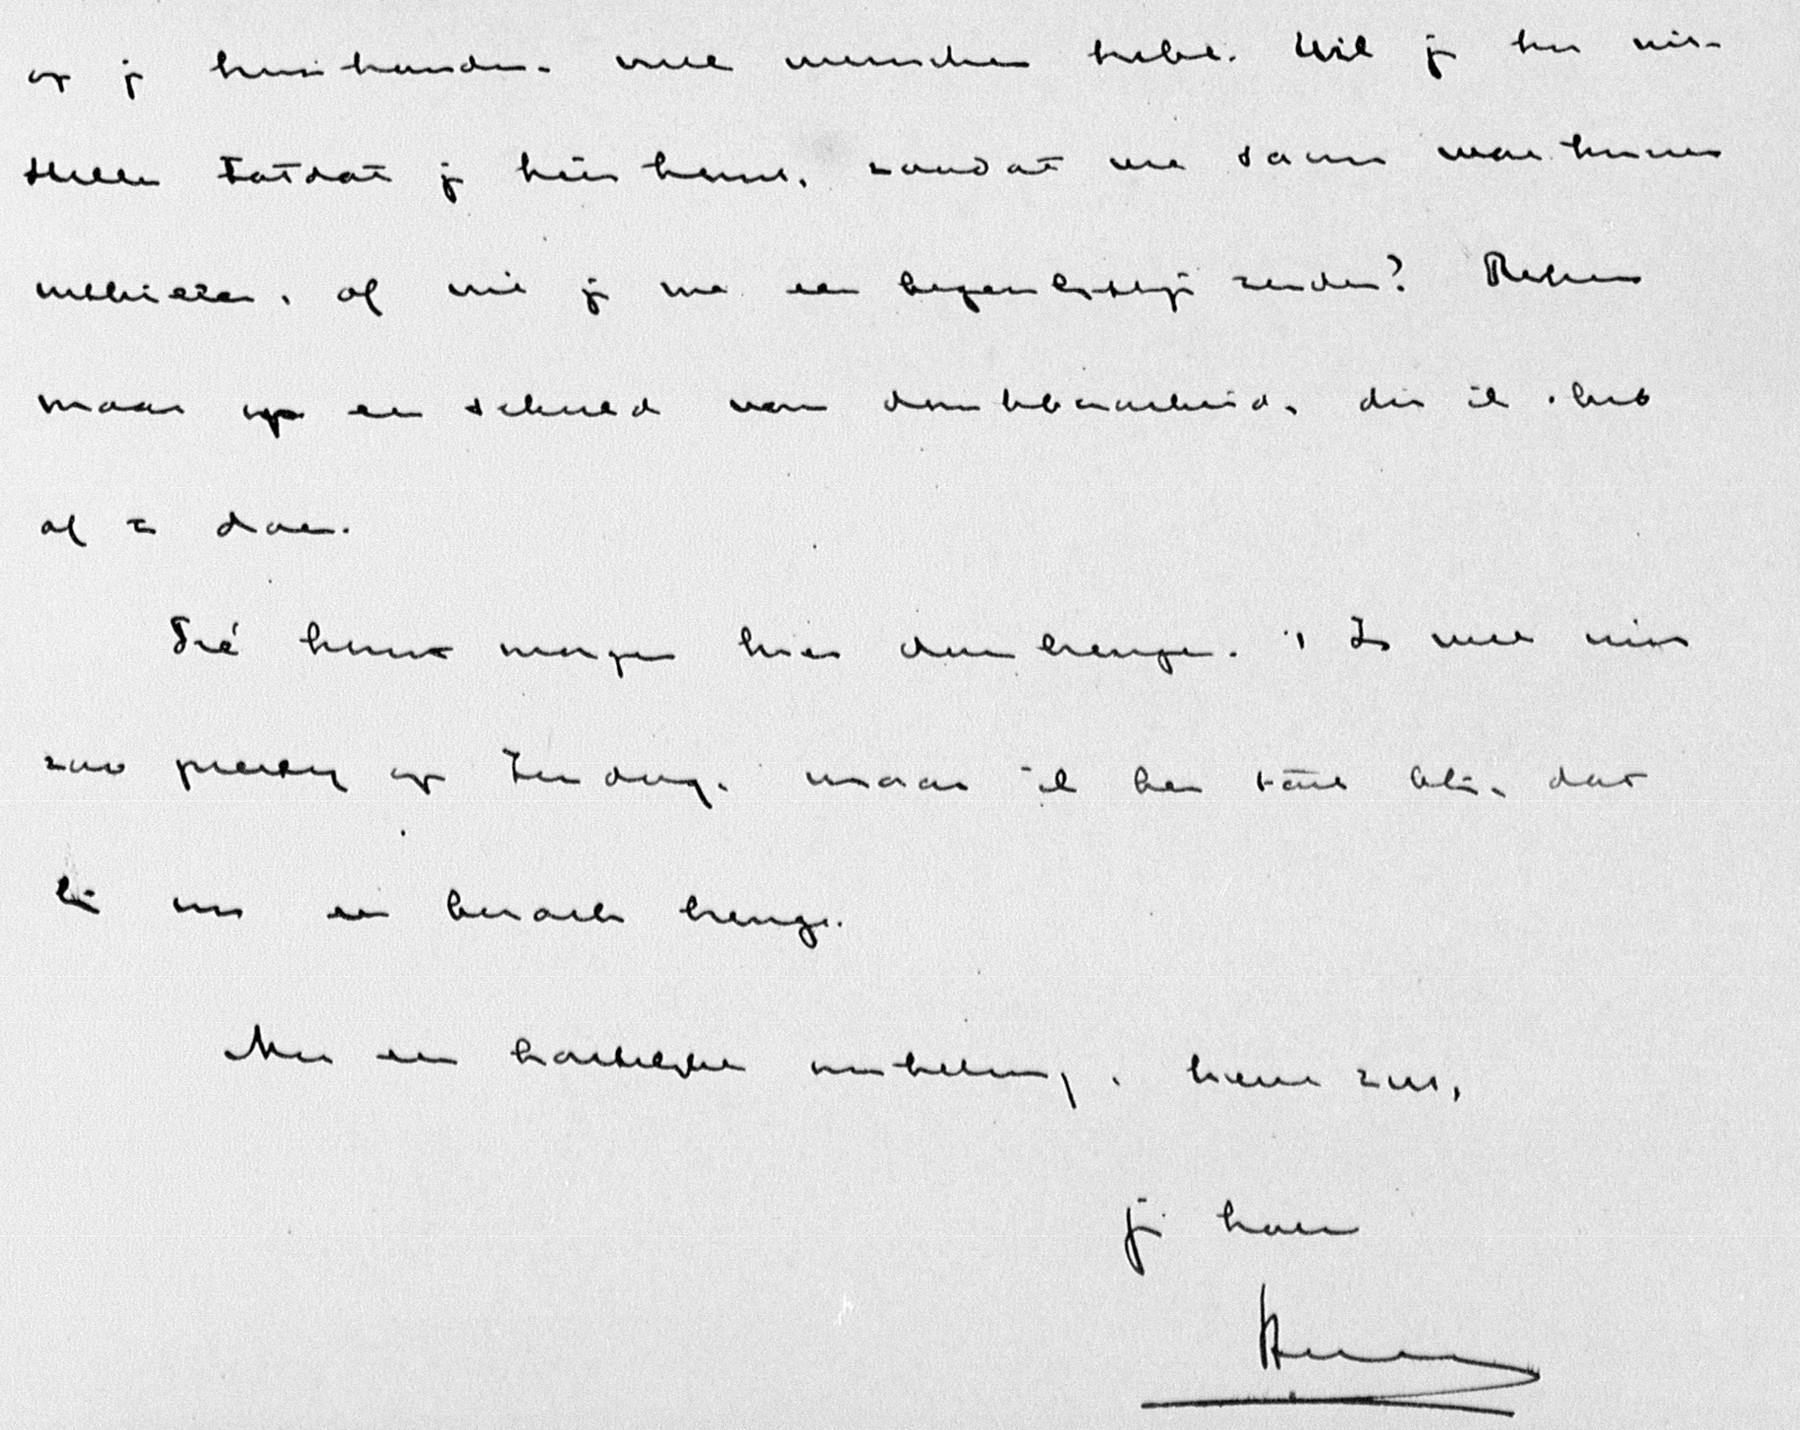 op je huishouden. veel menschen hebt. Wil je het uit-
stellen totdat je hier komt, zoodat we samen wat kunnen
, of wil je me een zenden? Reken
maar op een schuld van dankbaarheid, die ik heb
af te doen.
Tré komt morgen hier doorbrengen. 't Is wel niet
zoo prettig op Zondag, maar ik ben toch blij, dat
zij ons een bezoek brengt.
Met een hartelijke omhelzing, lieve zus,
je broer